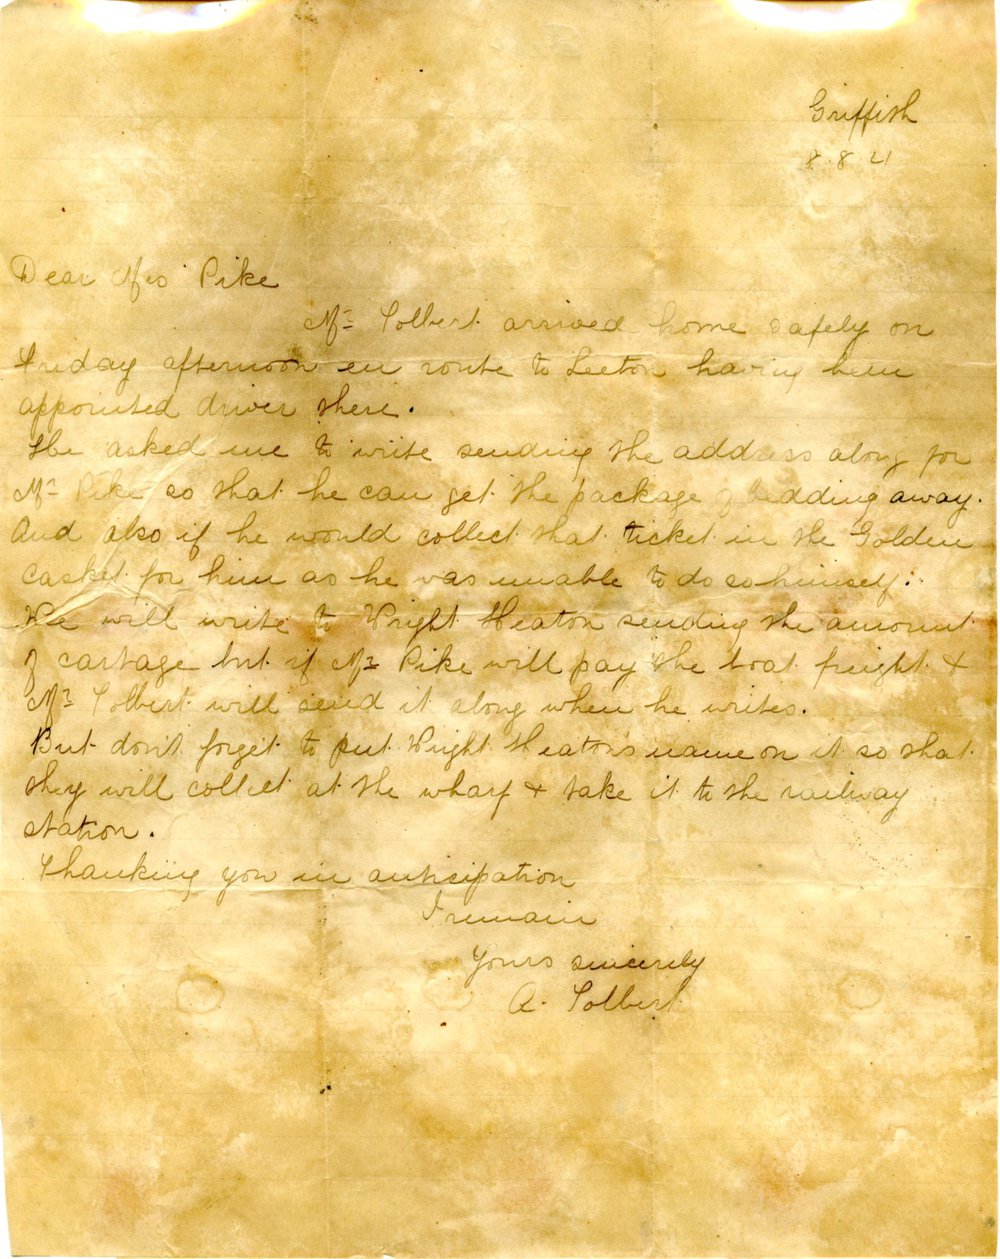 Griffith
8.8.21
Dear Mrs Pike
Mr Tolbert arrived home safely on
Friday afternoon en route to Leeton having been
appointed driver there.
He asked me to write sending the address along for
Mr Pike so that he can get the package of bedding away.
And also if he would collect that ticket in the Golden
casket for him as he was unable to do so himself.
We will write to Wright Heaton sending the amount
of cartage but if Mr Pike will pay the boat freight &
Mr Tolbert will send it along when he writes.
But don't forget to put Wright Heaton's name on it so that
they will collect at the wharf & take it to the railway
station.
Thanking you in anticipation
I remain
Yours sincerely
A. Tolbert